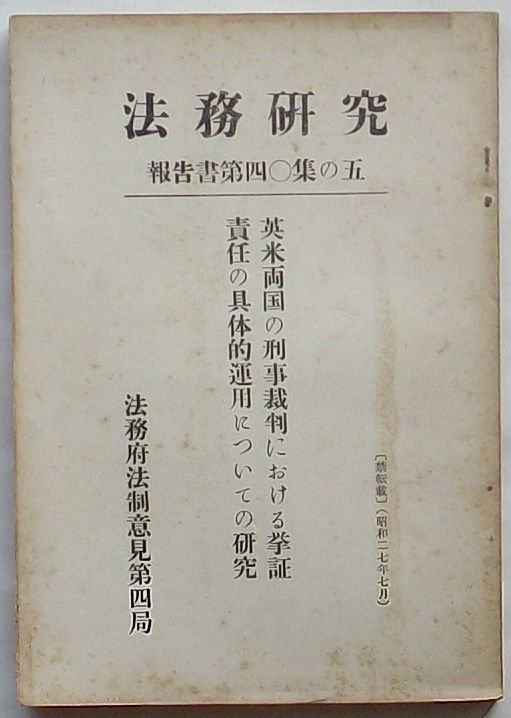 法務研究
報告書第四〇集の五
〔禁転載〕(昭和二七年七月)
英米両国の刑事裁判における挙証
責任の具体的運用についての研究
法務府法制意見第四局